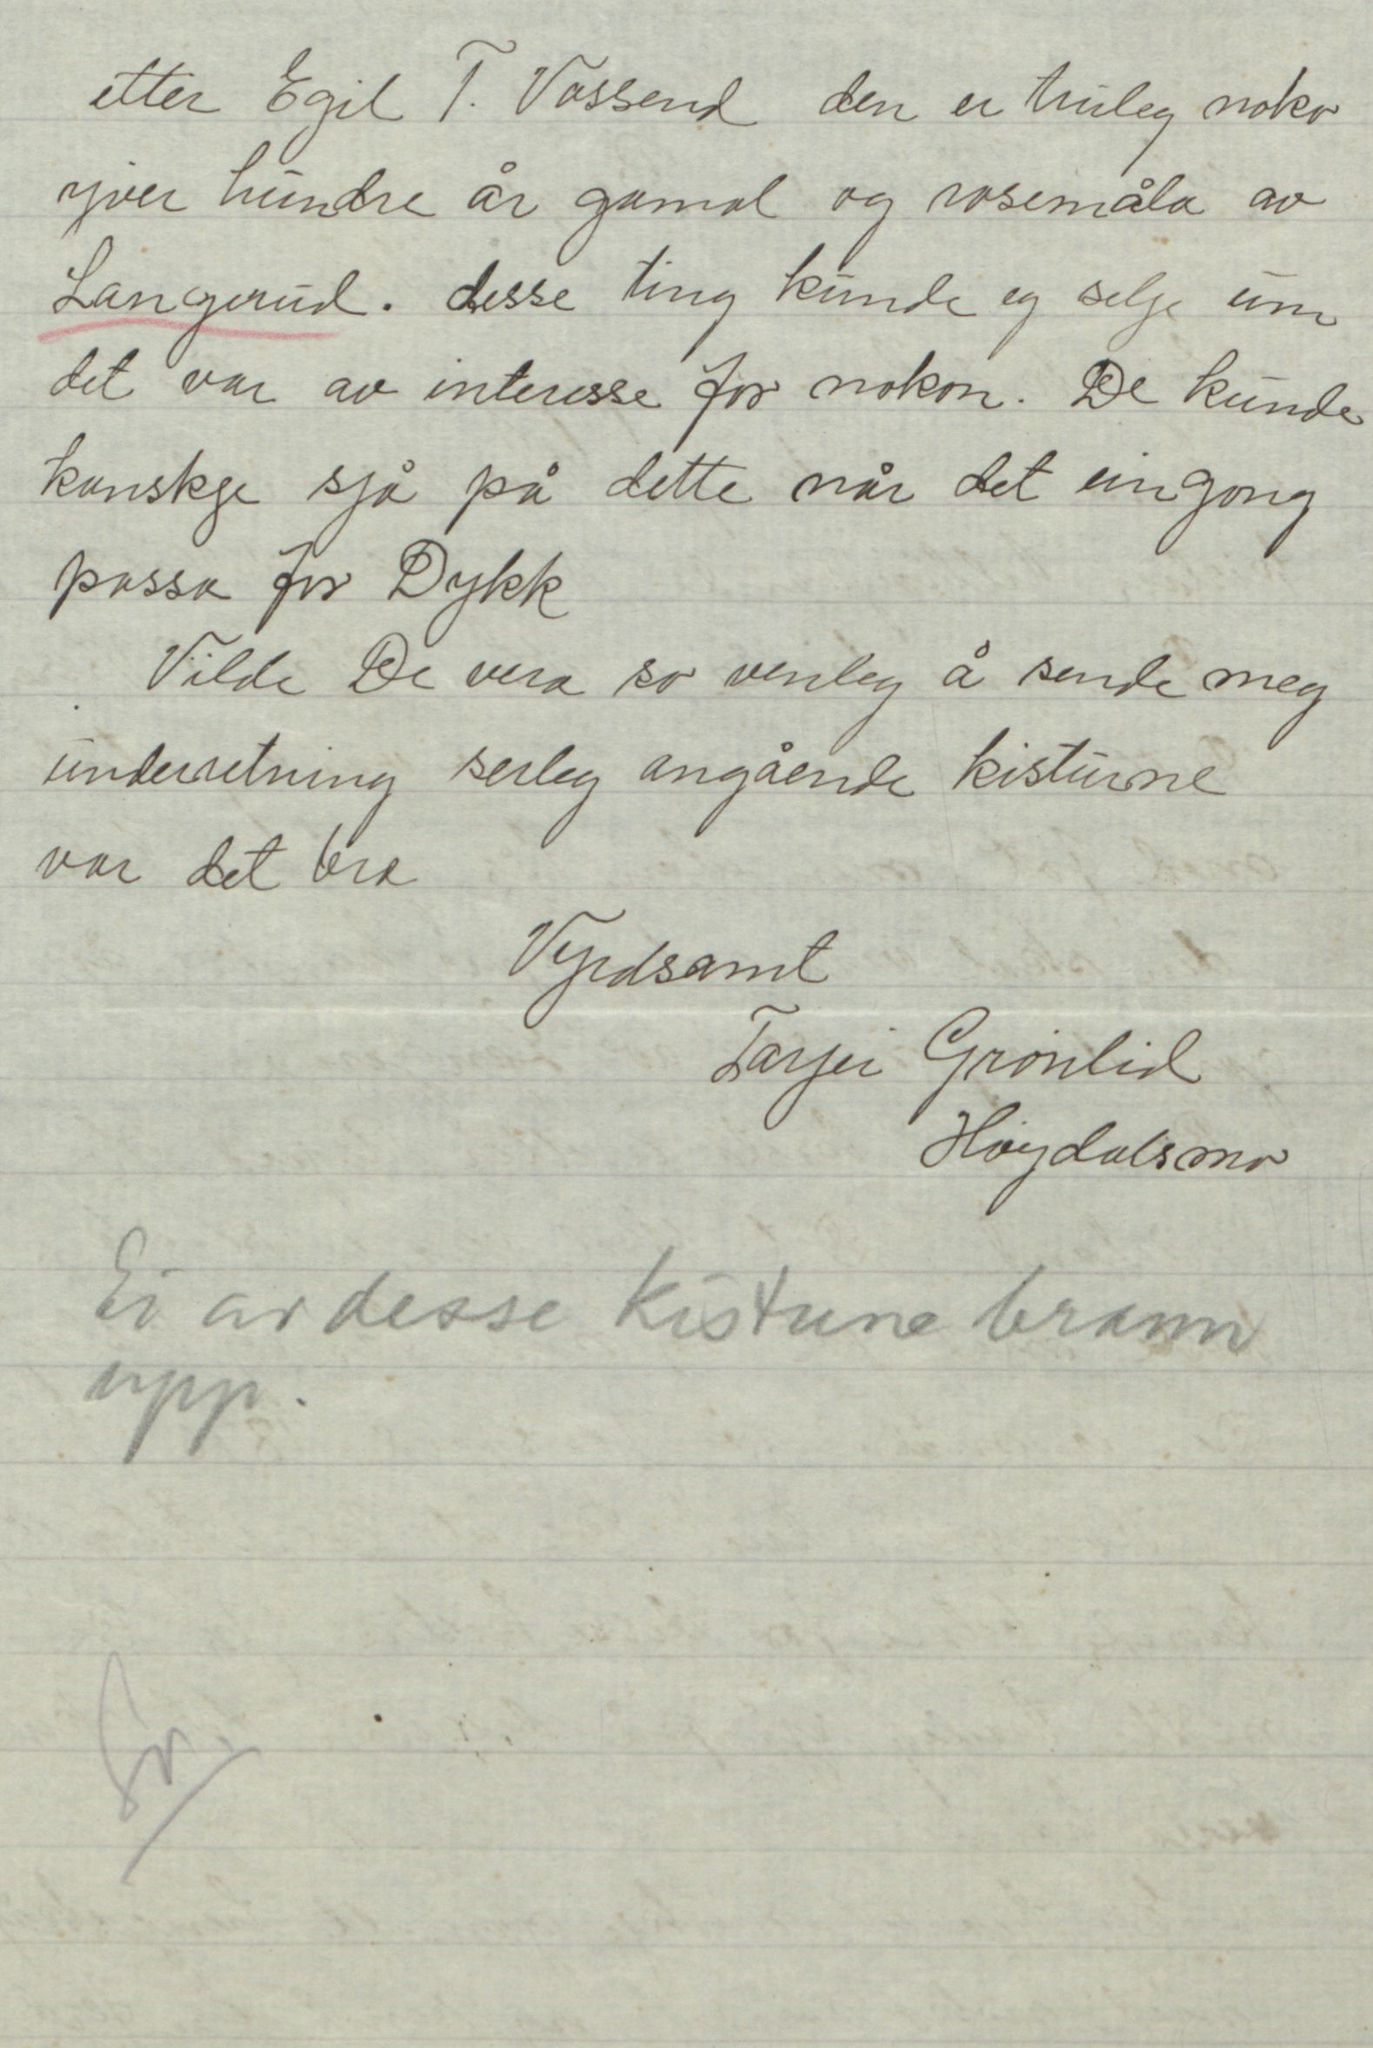 etter Egil T. Vassend den er truleg noko
yver hundre år gamal og rosemåla av
Langerud. desse ting kunde eg selje um
det var av interesse for nokon. De kunde
kanskje sjå på dette når det eingong
passa for Dykk
Vilde De vera so venleg å sende meg
underretning serleg angående kisturne
var det bra
Vyrdsamt
Tarjei Grönlid
Höydalsmo
Ei av desse kistune brann
upp.